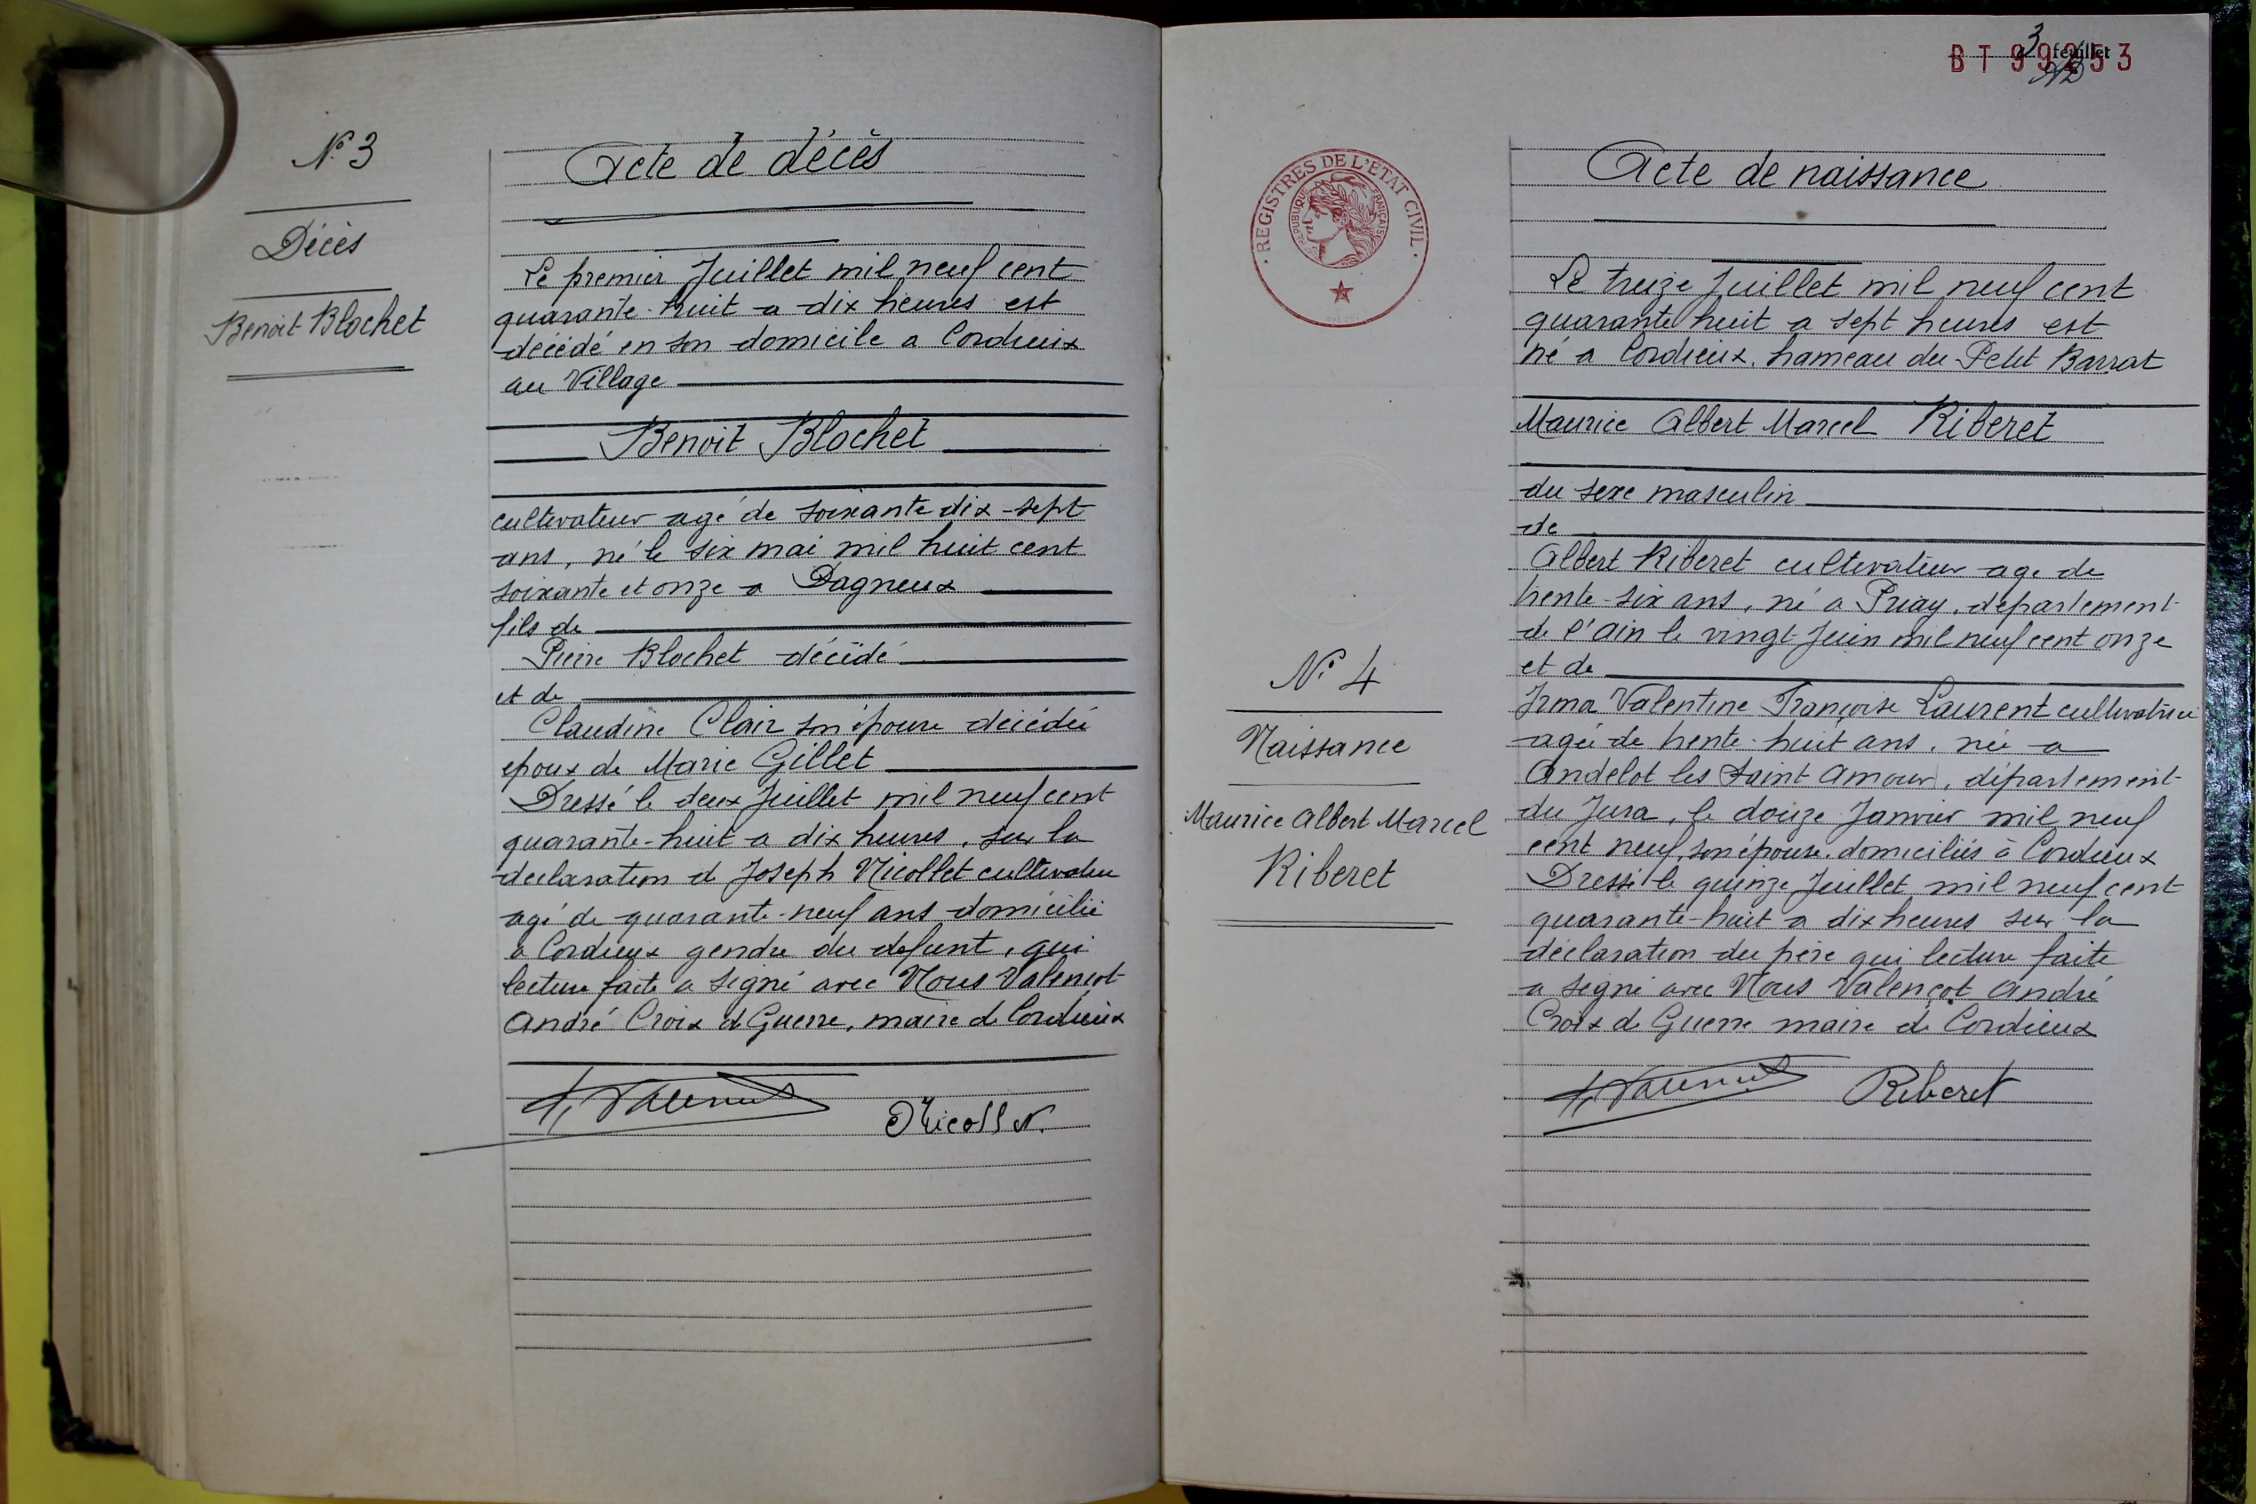 N° 3
Décès
Benoit Blochet
Acte de décès
Le premier Juillet mil neuf cent
quarante-huit a dix heures est
décédé en son domicile a Cordieux
au Village
Benoit Blochet
cultivateur agé de soixante dix-sept
ans, né le six mai mil huit cent
soixante et onze a Dagneux
fils de
Pierre Blochet décédé
et de
Claudine Clair son épouse décédée
epoux de Marie Gillet
Dressé le deux Juillet mil neuf cent
quarante-huit a dix heures, sur la
declaration d Joseph Nicollet cultivateur
agé de quarante-neuf ans domicilié
a Cordieux gendre du defunt, qui
lecture faite a signé avec Nous Valençot
André Croix d Guerre, maire d Cordieux
Nicollet
BT 99253
3 feuillet
REGISTRES DE L'ETAT CIVIL
REPUBLIQUE FRANÇAISE
N° 4
Naissance
Maurice Albert Marcel
Riberet
Acte de naissance
Le treize Juillet mil neuf cent
quarante huit a sept heures est
né a Cordieux, hameau du Petit Barrat
Maurice Albert Marcel Riberet
du sexe masculin
de
Albert Riberet cultivateur age de
trente-six ans, né a Priay, département
de l'Ain le vingt Juin mil neuf cent onze
et de
Irma Valentine Françoise Laurent cultivatrice
agée de trente-huit ans, née a
Andelot les Saint Amour, département
du Jura, le douze Janvier mil neuf
cent neuf, son épouse, domiciliés à Cordieux
Dressé le quinze Juillet mil neuf cent
quarante-huit a dix heures sur la
déclaration du père qui lecture faite
a signé avec Nous Valençot André
Croix de Guerre maire de Cordieux
Riberet